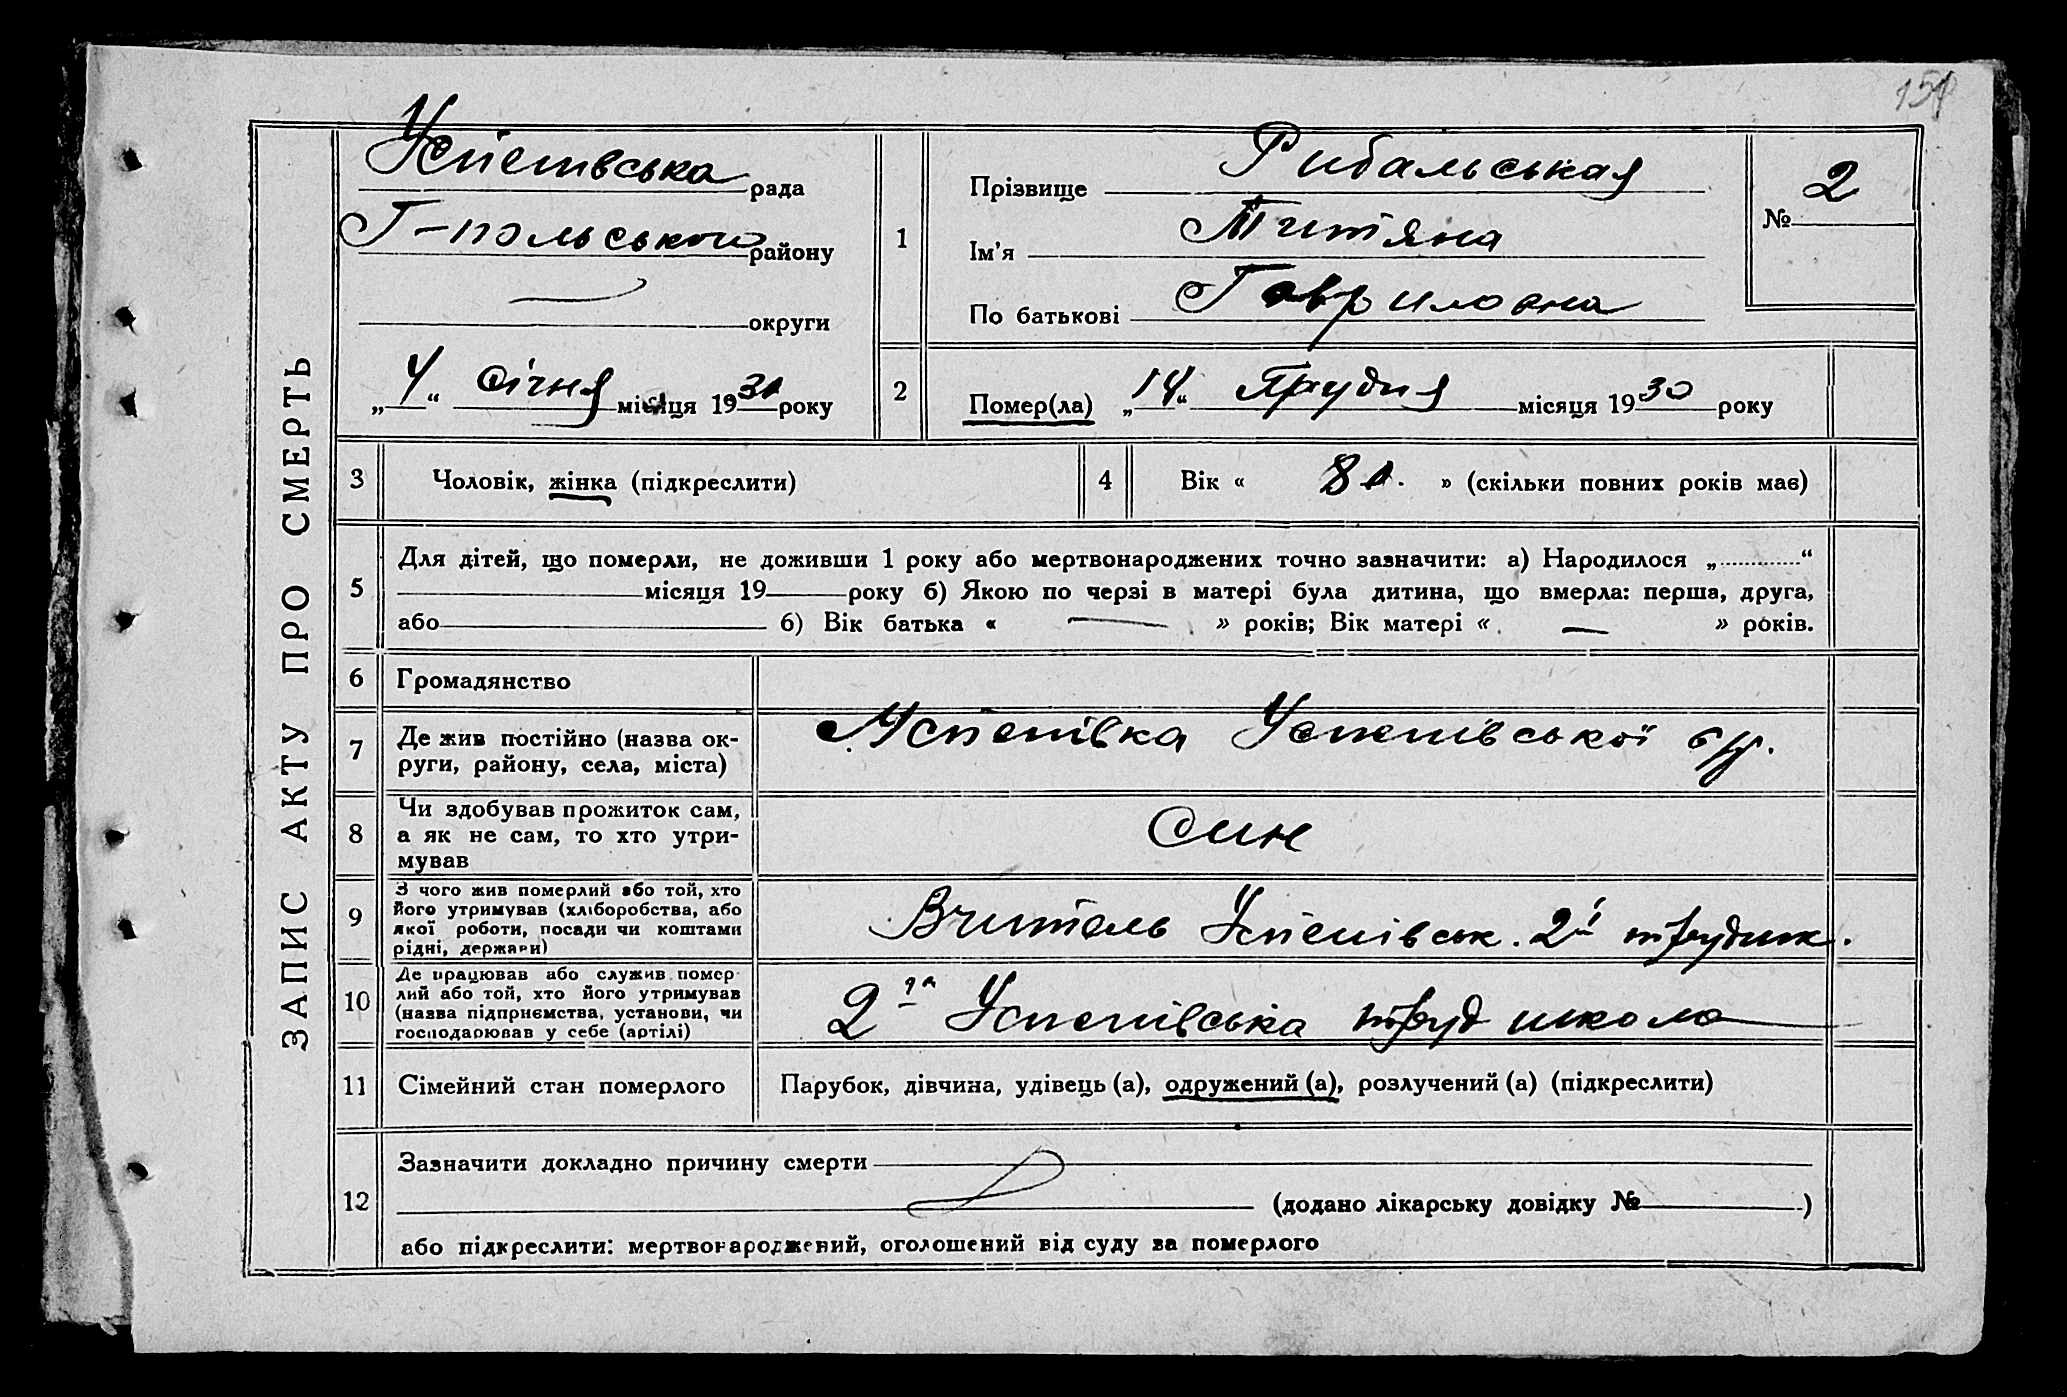 ЗАПИС АКТУ ПРО СМЕРТЬ
Успенівська рада
Г-польського району
округи
„4“ січня місяця 1931 року
1
Прізвище Рибальская
Ім'я Титяна
По батькові Гавриловна
№ 2
2
Помер(ла) „14“ Грудня місяця 1930 року
3 Чоловік, жінка (підкреслити)
4 Вік « 81. » (скільки повних років має)
5
Для дітей, що померли, не доживши 1 року або мертвонароджених точно зазначити: а) Народилося „ “
місяця 19 року б) Якою по черзі в матері була дитина, що вмерла: перша, друга,
або б) Вік батька « — » років; Вік матері « — » років.
6 Громадянство
7
Де жив постійно (назва ок-
руги, району, села, міста)
Успенівка Успенівської с/р.
8
Чи здобував прожиток сам,
а як не сам, то хто утри-
мував
Син
9
З чого жив померлий або той, хто
його утримував (хліборобства, або
якої роботи, посади чи коштами
рідні, держави)
Вчитель Успенівськ. 2ї
10
Де працював або служив помер-
лий або той, хто його утримував
(назва підприємства, установи, чи
господарював у себе (артілі)
2га Успенівська труд школа
11 Сімейний стан померлого
Парубок, дівчина, удівець (а), одружений (а), розлучений (а) (підкреслити)
12
Зазначити докладно причину смерти
(додано лікарську довідку № )
або підкреслити: мертвонароджений, оголошений від суду за померлого